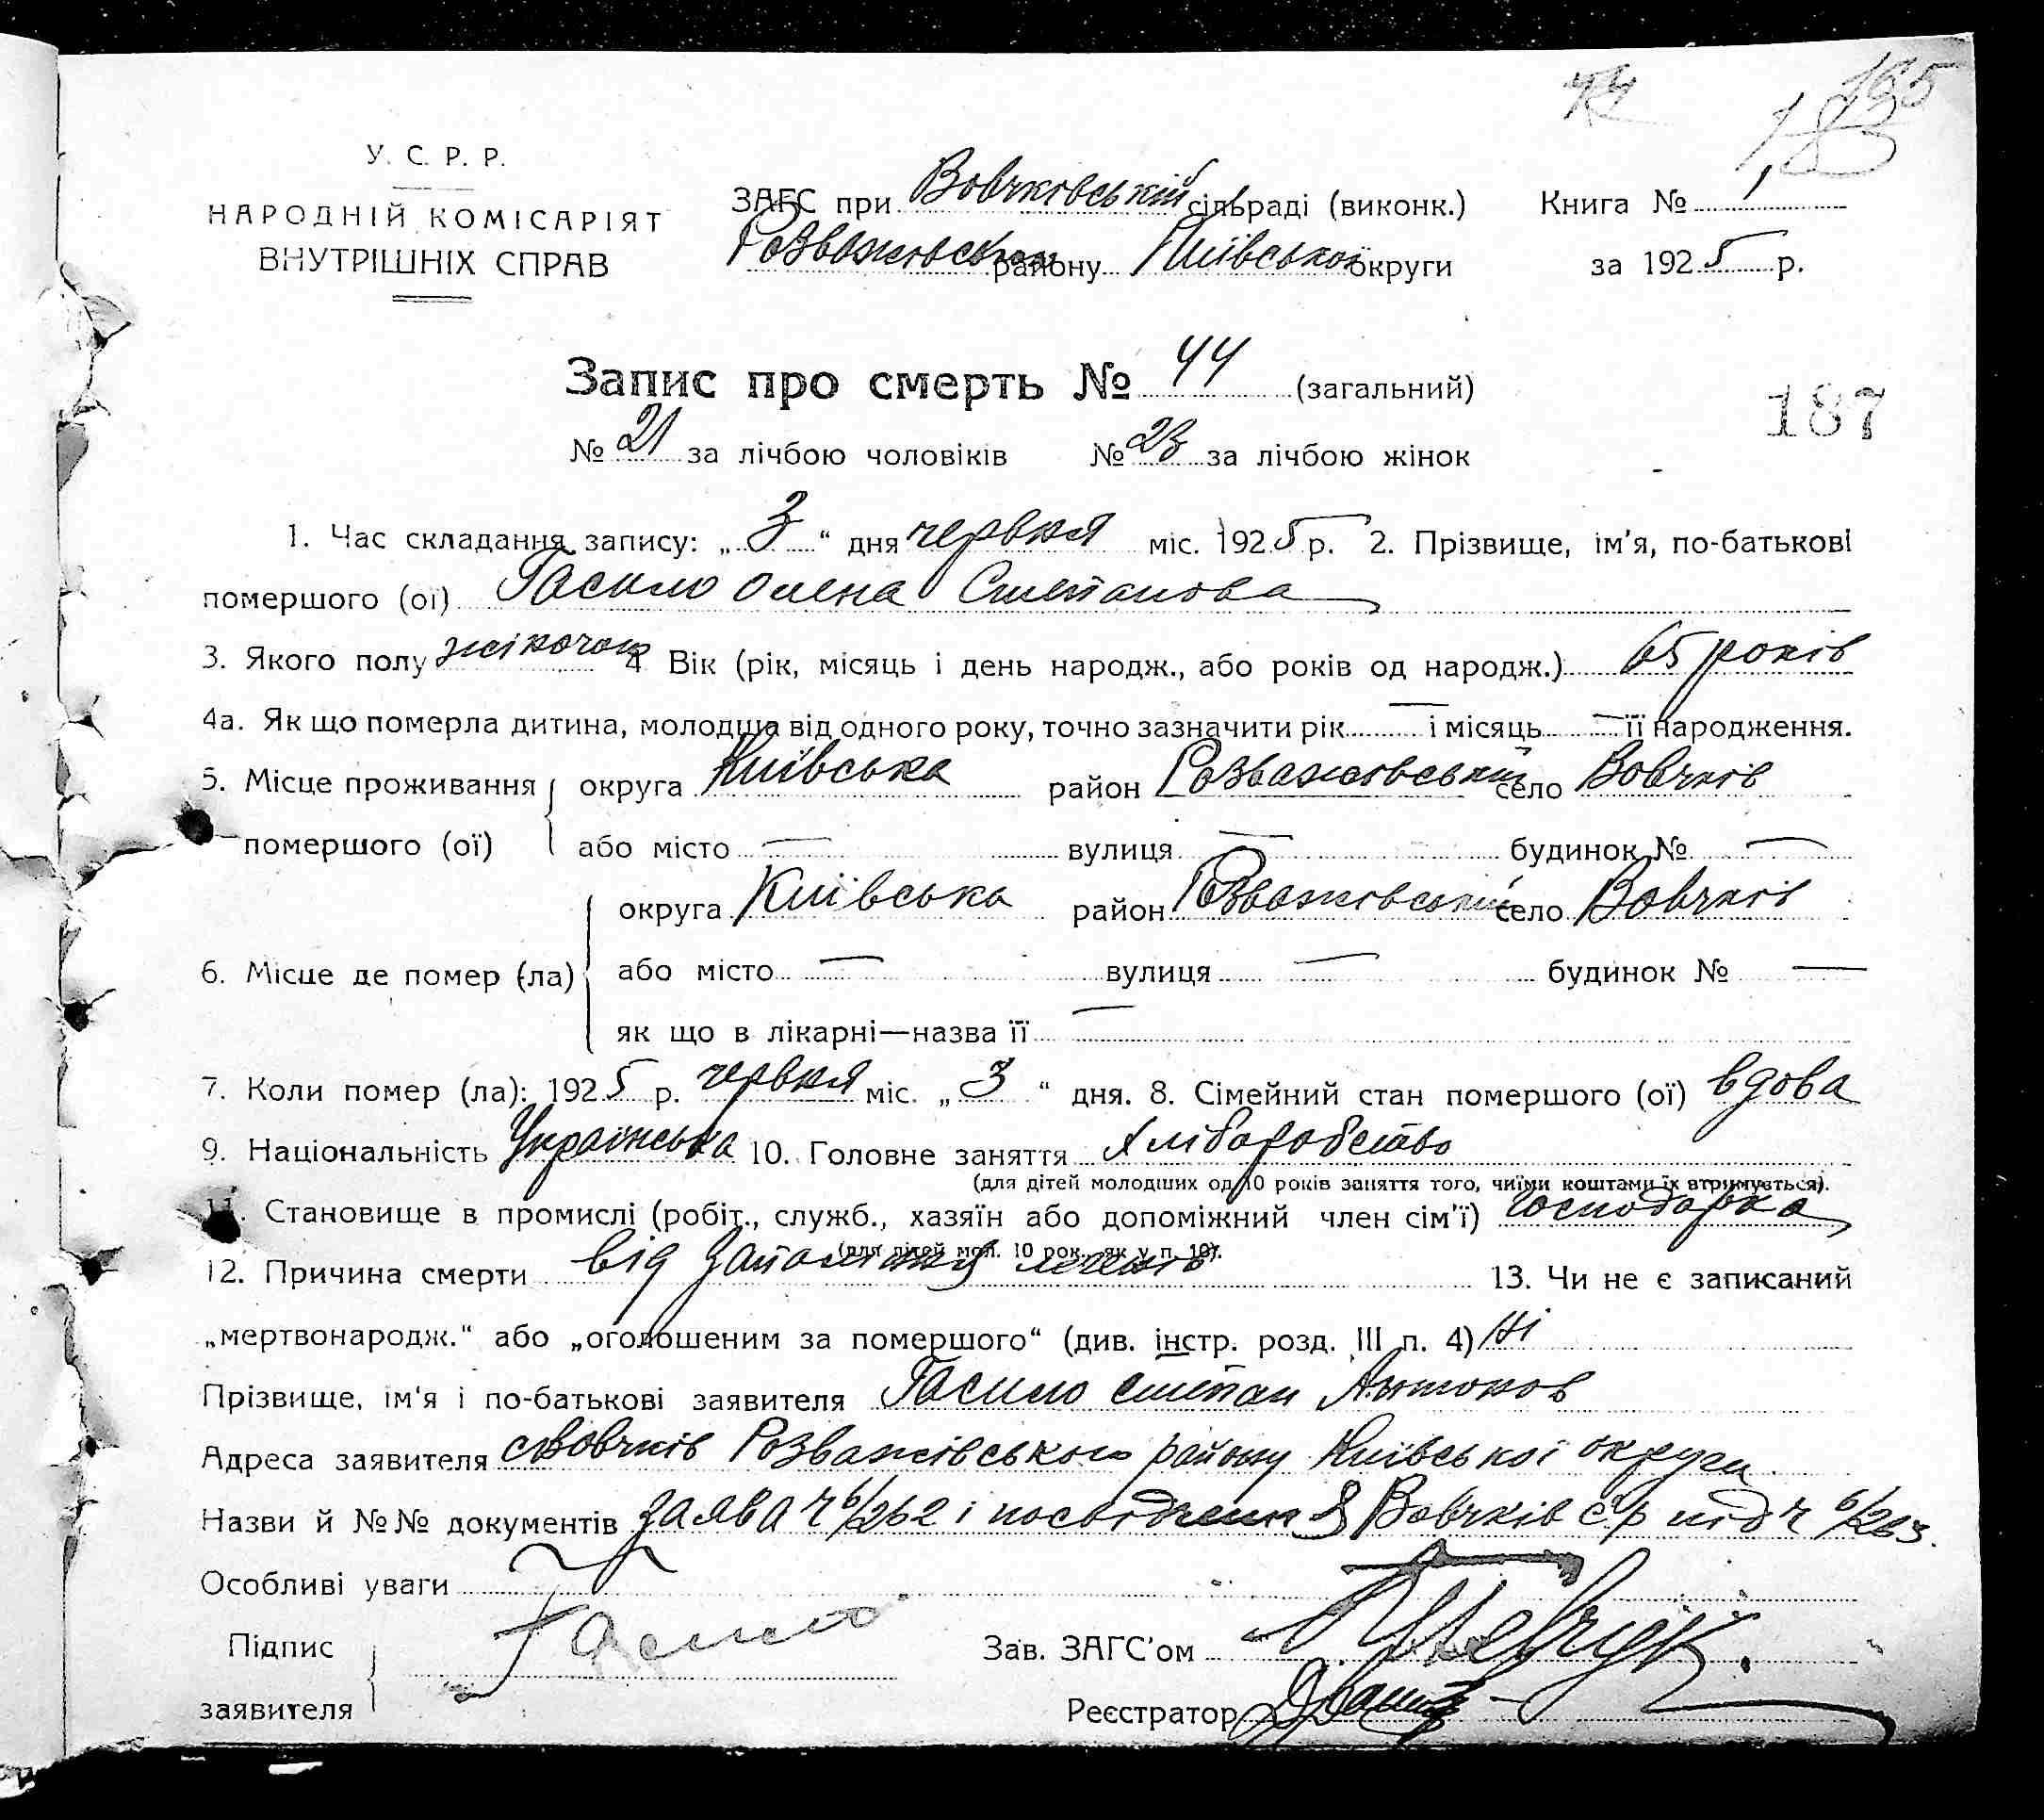 44 185
183
У. С. Р. Р.
НАРОДНІЙ КОМІСАРІЯТ
ВНУТРІШНІХ СПРАВ
ЗАГС при Вовчківській сільраді (виконк.) Книга № 1
Розважівськог району Київської округи за 1925 р.
Запис про смерть № 44 (загальний)
187
№ 21 за лічбою чоловіків № 23 за лічбою жінок
1. Час складання запису: „ 3 “ дня червня міс. 1925 р. 2. Прізвище, ім'я, по-батькові
помершого (ої) Гасило Олена Степанова
3. Якого полу жіночог 4 Вік (рік, місяць і день народж., або років од народж.) 65 років
4а. Як що померла дитина, молодша від одного року, точно зазначити рік — і місяць — її народження.
5. Місце проживання округа Київська район Розважівський село Вовчків
помершого (ої) або місто — вулиця — будинок № —
округа Київська район Розважівський село Вовчків
6. Місце де помер (ла) або місто — вулиця — будинок № —
як що в лікарні—назва її —
7. Коли помер (ла): 1925 р. червня міс. „ 3 “ дня. 8. Сімейний стан помершого (ої) вдова
9. Національність Українська 10. Головне заняття Хліборобство
(для дітей молодших од 10 років заняття того, чиїми коштами їх втримується).
11. Становище в промислі (робіт., служб., хазяїн або допоміжний член сім'ї) господарка
(для дітей мол. 10 рок. як у п. 10).
12. Причина смерти від запаління легенів 13. Чи не є записаний
„мертвонародж.“ або „оголошеним за помершого“ (див. інстр. розд. III п. 4) Ні
Прізвище, ім'я і по-батькові заявителя Гасило Степан Антонов
Адреса заявителя с Вовчків Розважівського району Київської округи
Назви й №№ документів заява ч 6/262 і посвідчення Вовчків с/р під ч 6/263.
Особливі уваги
Підпис Гасило Зав. ЗАГС'ом Шевчук.
заявителя Реєстратор